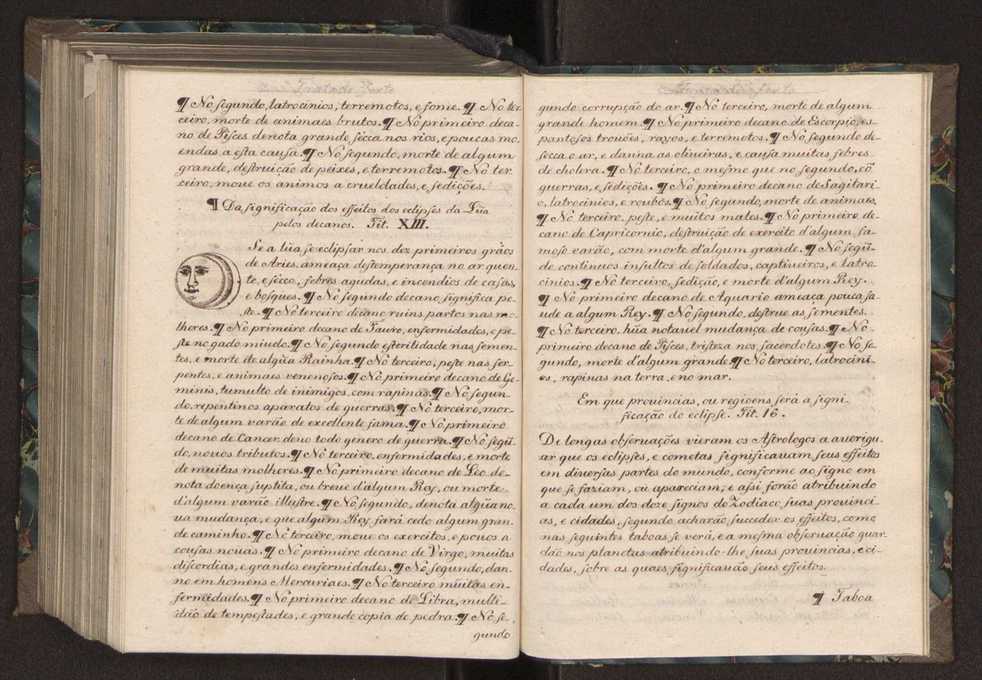 ¶ No ſegundo, latrocinios, terremotos, e fome. ¶ No ter
ceiro, morte de animaes brutos. ¶ No primeiro deca-
no de Piſces denota grande ſecca nos rios, e poucas mo
endas a eſta cauſa. ¶ No ſegundo, morte de algum
grande, deſtruição de peixes, e torremotos. ¶ No ter
ceiro, moue os animos a crueldades, e ſedições.
¶ Da ſignificação dos effeitos dos eclipſes da Lũa
pelos decanos. Tit. XIII.
Se a lũa ſe eclipſar nos dez primeiros grãos
de Aries, ameaça deſtemperança no ar quen-
te, e ſecco, febres agudas, e incendios de caſas,
e boſques. ¶ No ſegundo decano, ſignifica pe-
ſte. ¶ No terceiro decano ruins partos nas mo-
lheres. ¶ No primeiro decano de Tauro, enfermidades, e pe-
ſte no gado miudo. ¶ No ſegundo eſterilidade nas ſemen-
tes, e morte de algũa Rainha. ¶ No terceiro, peſte nas ſer-
pentes, e animaes venenoſos. ¶ No primeiro decano de Ge-
minis, tumulto de inimigos, com rapinas. ¶ No ſegun-
do, repentinos aparatos de guerras. ¶ No terceiro, mor-
te de algum varão de excellente fama. ¶ No primeiro
decano de Cancer, deno todo genero de guerra. ¶ No ſegũ-
do, nouos tributos. ¶ No terceiro, enfermidades, e morte
de muitas molheres. ¶ No primeiro decano de Leo, de-
nota doença ſupita, ou breue d'algum Rey, ou morte
d'algum varão illuſtre. ¶ No ſegundo, denota algũa no-
ua mudança, e que algum Rey fará cedo algum gran
de caminho. ¶ No terceiro, moue os exercitos, e pouos a
couſas nouas. ¶ No primeiro decano de Virgo, muitas
diſcordias, e grandes enfermidades. ¶ No ſegundo, dan-
no em homens Mercuriaes. ¶ No terceiro muitas en-
fermidades. ¶ No primeiro decano de Libra, multi-
dão de tempeſtades, e grande copia de pedra. ¶ No ſe-
gundo
gundo corrupção do ar. ¶ No terceiro, morte de algum
grande homem. ¶ No primeiro decano de Eſcorpio, eſ-
pantoſos trouões, rayos, e terremotos. ¶ No ſegundo de-
ſecca o ar, e danna as oliueiras, e cauſa muitas febres
de cholera. ¶ No terceiro, o meſmo que no ſegundo, cõ
guerras, e ſedições. ¶ No primeiro decano de Sagitari-
o, latrocinios, e roubos. ¶ No ſegundo, morte de animaes.
¶ No terceiro, peſte, e muitos males. ¶ No primeiro de-
cano de Capricornio, deſtruição de exercito d'algum fa-
moſo varão, com morte d'algum grande. ¶ No ſegũ-
do continuos inſultos de ſoldados, captiueiros, e latro-
cinios. ¶ No terceiro, ſedição, e morte d'algum Rey.
¶ No primeiro decano de Aquario ameaça pouca ſa-
ude a algum Rey. ¶ No ſegundo, deſtrue as ſementes.
¶ No terceiro, hũa notauel mudança de couſas. ¶ No
primeiro decano de Piſces, triſteza nos ſacerdotes. ¶ No ſe-
gundo, morte d'algum grande. ¶ No terceiro, latrocini-
os, rapinas na terra, e no mar.
Em que prouincias, ou regioens ſerá a ſigni
ficação do eclipſe. Tit. 16.
De longas obſeruações vieram os Aſtrologos a auerigu-
ar que os eclipſes, e cometas ſignificauam ſeus effeitos
em diuerſas partes do mundo, conforme ao ſigno em
que ſe faziam, où apareciam, e aſsi forão atribuindo
a cada um dos doze ſignos do Zodiaco ſuas prouinci
as, e cidades, ſegundo acharão ſucceder os effeitos, como
nas ſeguintes taboas ſe verá, e a meſma obſeruação guar
dão nos planetas atribuindo-lhe ſuas prouincias, e ci-
dades, ſobre as quaes ſignificauão ſeus effeitos.
¶ Taboa